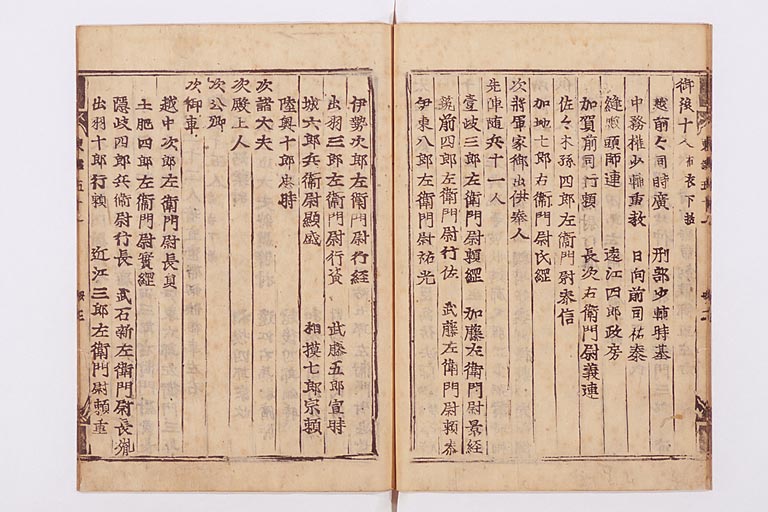 御後十人布衣下括
越前々司時廣　刑部少輔時基
中務權少輔重教　日向前司祐泰
縫殿頭師連　遠江四郎政房
加賀前司行頼　長次右衛門尉義連
佐々木孫四郎左衛門尉泰信
加地七郎右衛門尉氏經
次將軍家御出供奉人
先陣随兵十一人
壹岐三郎左衛門尉頼經　加藤左衛門尉景經
筑前四郎左衛門尉行佐　武藤左衛門尉頼泰
伊東八郎左衛門尉祐光
伊勢次郎左衛門尉行經
出羽三郎左衛門尉行資　武藤五郎宣時
城六郎兵衛尉顯盛　相摸七郎宗頼
陸奥十郎忠時
次諸大夫
次殿上人
次公卿
次御車
越中次郎左衛門尉長員
土肥四郎左衛門尉實經
隠岐四郎兵衛尉行長　武石新左衛門尉長胤
出羽十郎行頼　近江三郎左衛門尉頼重